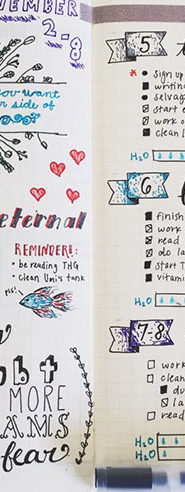 VEMBER
2-8
ou want
r side of
eternal
REMINDER!:
• be reading THG
• clean Umi's tank
pls!
bt
MORE
AMS
fear
5
sign up
writing
selvag
start c
work o
clean l
H₂O
6
finish
work
read
do la
start T
vitami
H₂O
7-8
work
clean
du
la
read
H₂O
H₂O